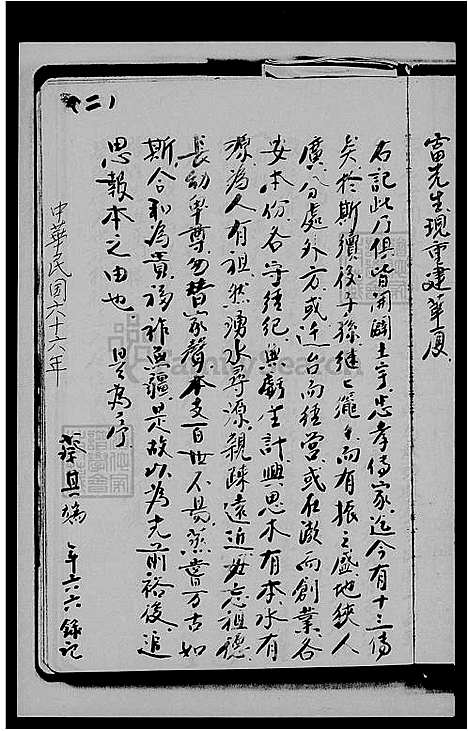 富先生現重建華厦
右記此乃俱皆開闢土宇忠孝傳家迄今有十三傳
矣於斯續後子孫繼繼繩繩而有振之盛地狹人
廣分處外方或迁台而經営或在漵而創業各
安本份各守經紀無虧生計興思木有本水有
源為人有祖然湧水尋源親疎遠近毋忘祖德
長幼卑尊勿替家聲本支百世不易蒸嘗万古如
斯合和為貴福祚無疆是故以為光前裕後追
思報本之由也 是為序
中華民国六十六年
蔡 年六六錄記
(二)
FamilySearch